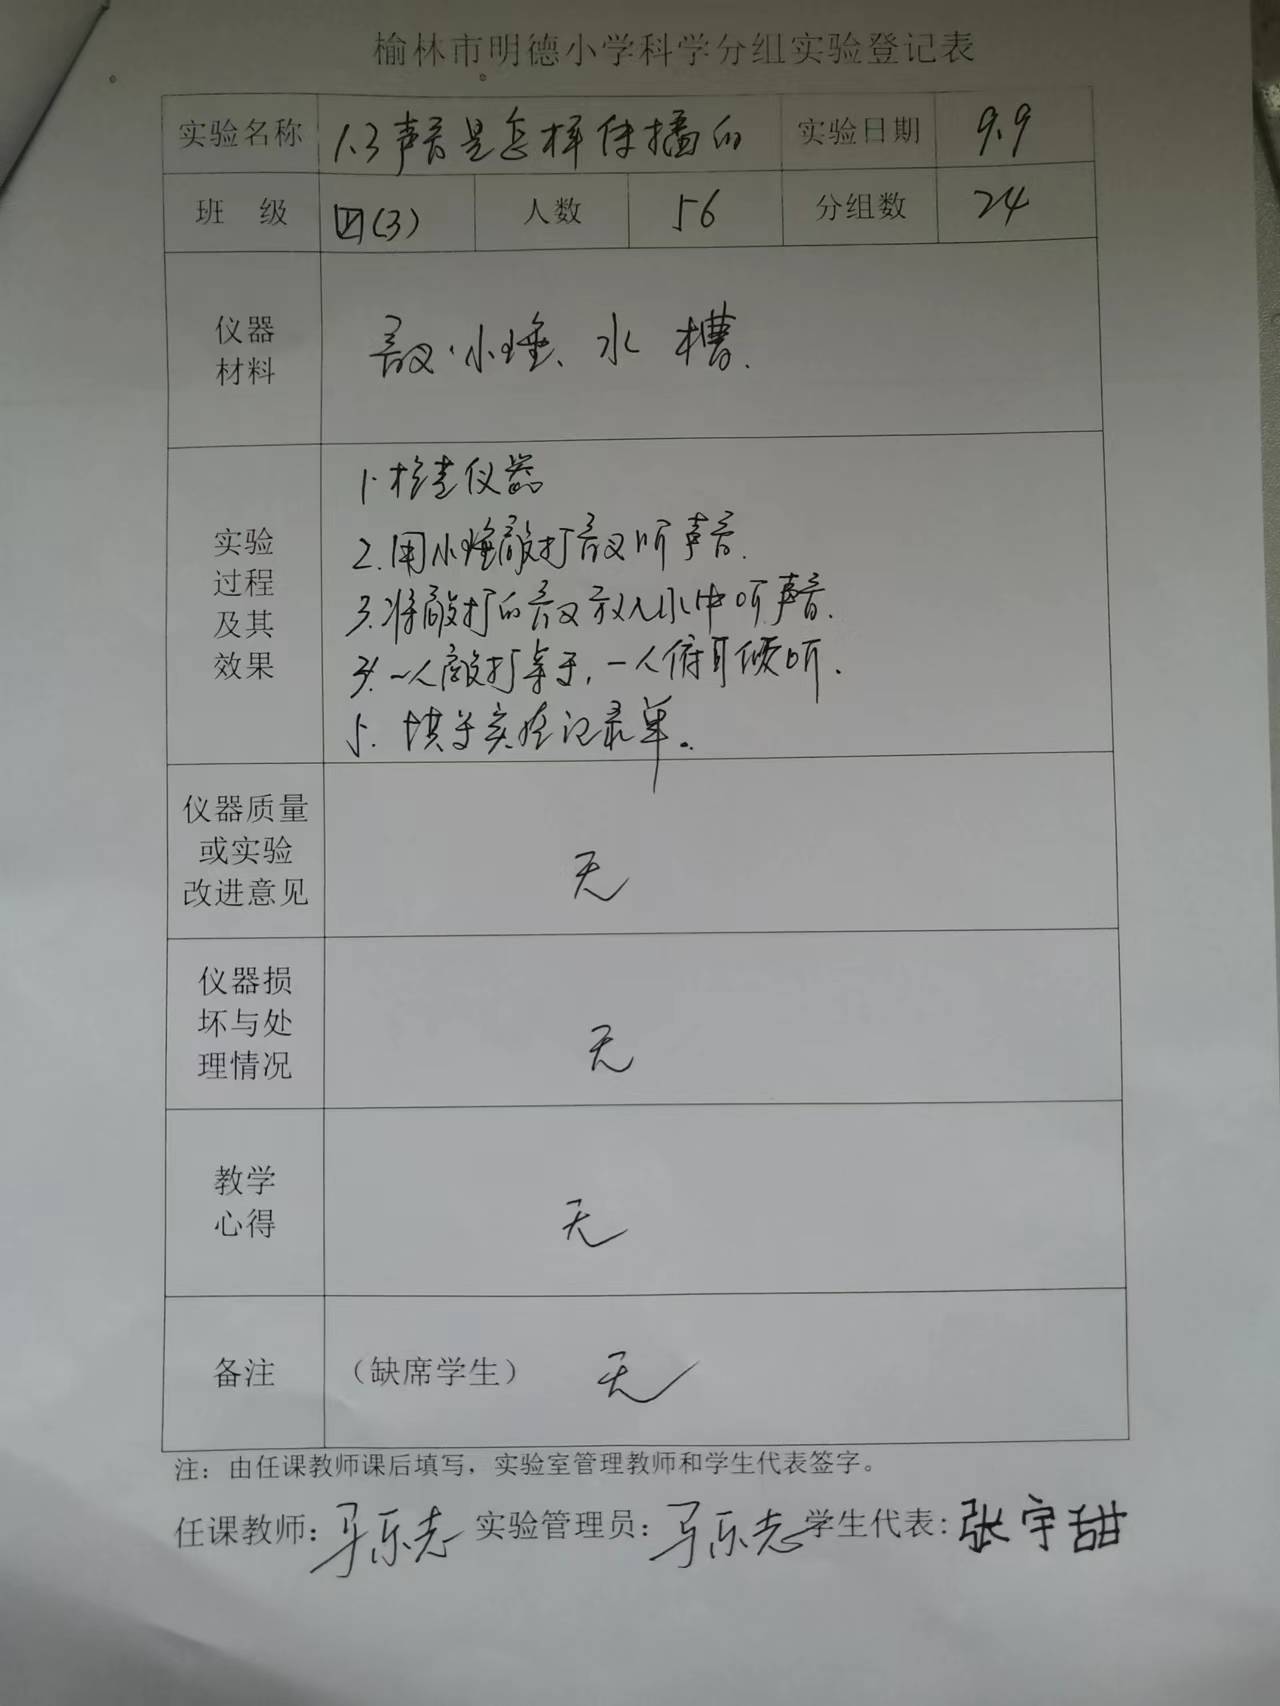 榆林市明德小学科学分组实验登记表
实验名称 1.3声音是怎样传播的 实验日期 9.9
班 级 四(3) 人数 56 分组数 24
仪器
材料
音叉、小锤、水槽.
实验
过程
及其
效果
1.检查仪器
2.用小锤敲打音叉听声音.
3.将敲打的音叉放入水中听声音.
4.一人敲打桌子,一人俯耳倾听.
5.填写实验记录单。
仪器质量
或实验
改进意见
无
仪器损
坏与处
理情况
无
教学
心得
无
备注 (缺席学生) 无
注：由任课教师课后填写，实验室管理教师和学生代表签字。
任课教师：马乐志 实验管理员：马乐志 学生代表：张宇甜